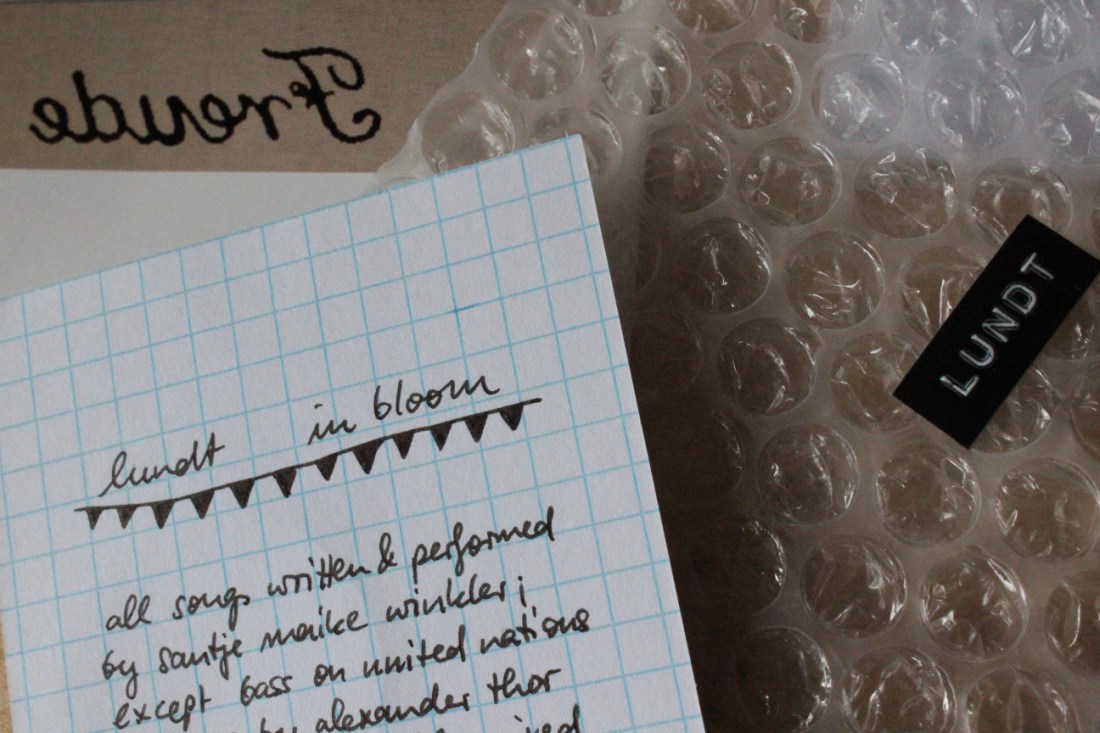 Freude
LUNDT
lundt in bloom
all songs written & performed
by santje maike winkler;
except bass on united nations
by alexander thor